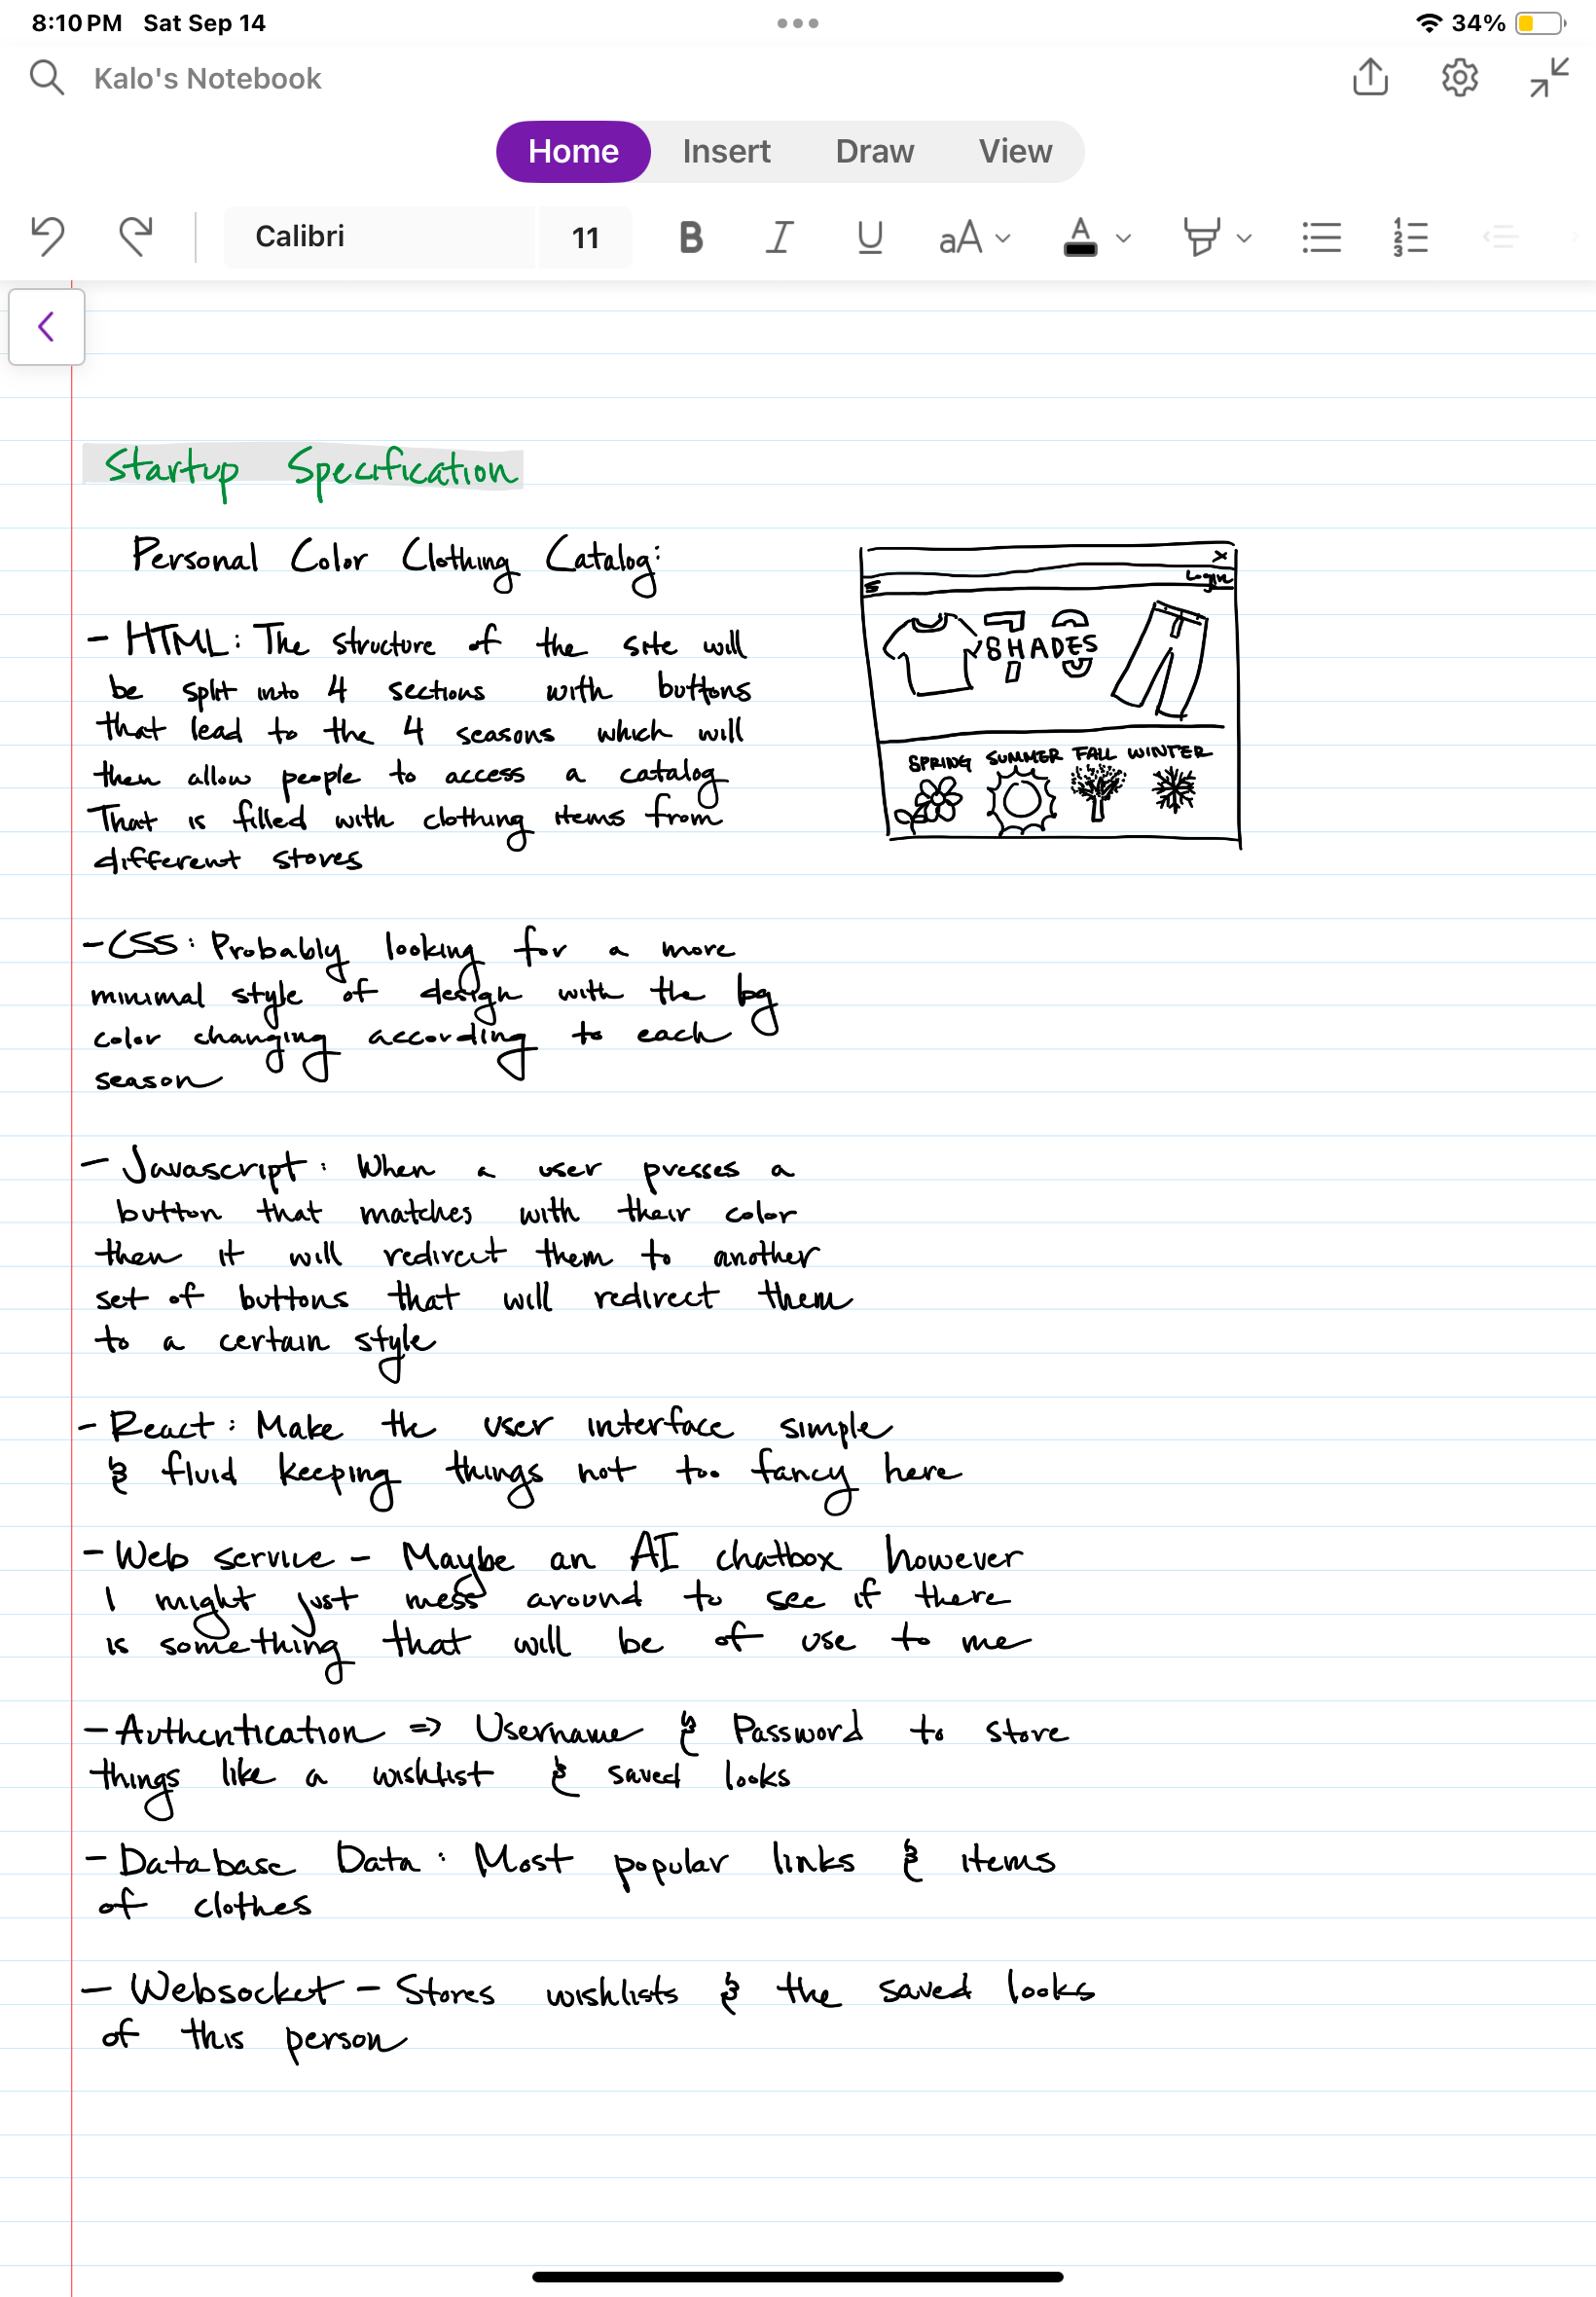 8:10 PM Sat Sep 14
34%
Kalo's Notebook
Home Insert Draw View
Calibri 11 B I U aA A
Startup Specification
Personal Color Clothing Catalog:
- HTML: The structure of the site will
be split into 4 sections with buttons
that lead to the 4 seasons which will
then allow people to access a catalog
That is filled with clothing items from
different stores
x
Login
SHADES
SPRING SUMMER FALL WINTER
- CSS: Probably looking for a more
minimal style of design with the bg
color changing according to each
season
- Javascript: When a user presses a
button that matches with their color
then it will redirect them to another
set of buttons that will redirect them
to a certain style
- React: Make the user interface simple
& fluid keeping things not too fancy here
- Web service - Maybe an AI chatbox however
I might just mess around to see if there
is something that will be of use to me
- Authentication => Username & Password to store
things like a wishlist & saved looks
- Database Data: Most popular links & items
of clothes
- Websocket - Stores wishlists & the saved looks
of this person